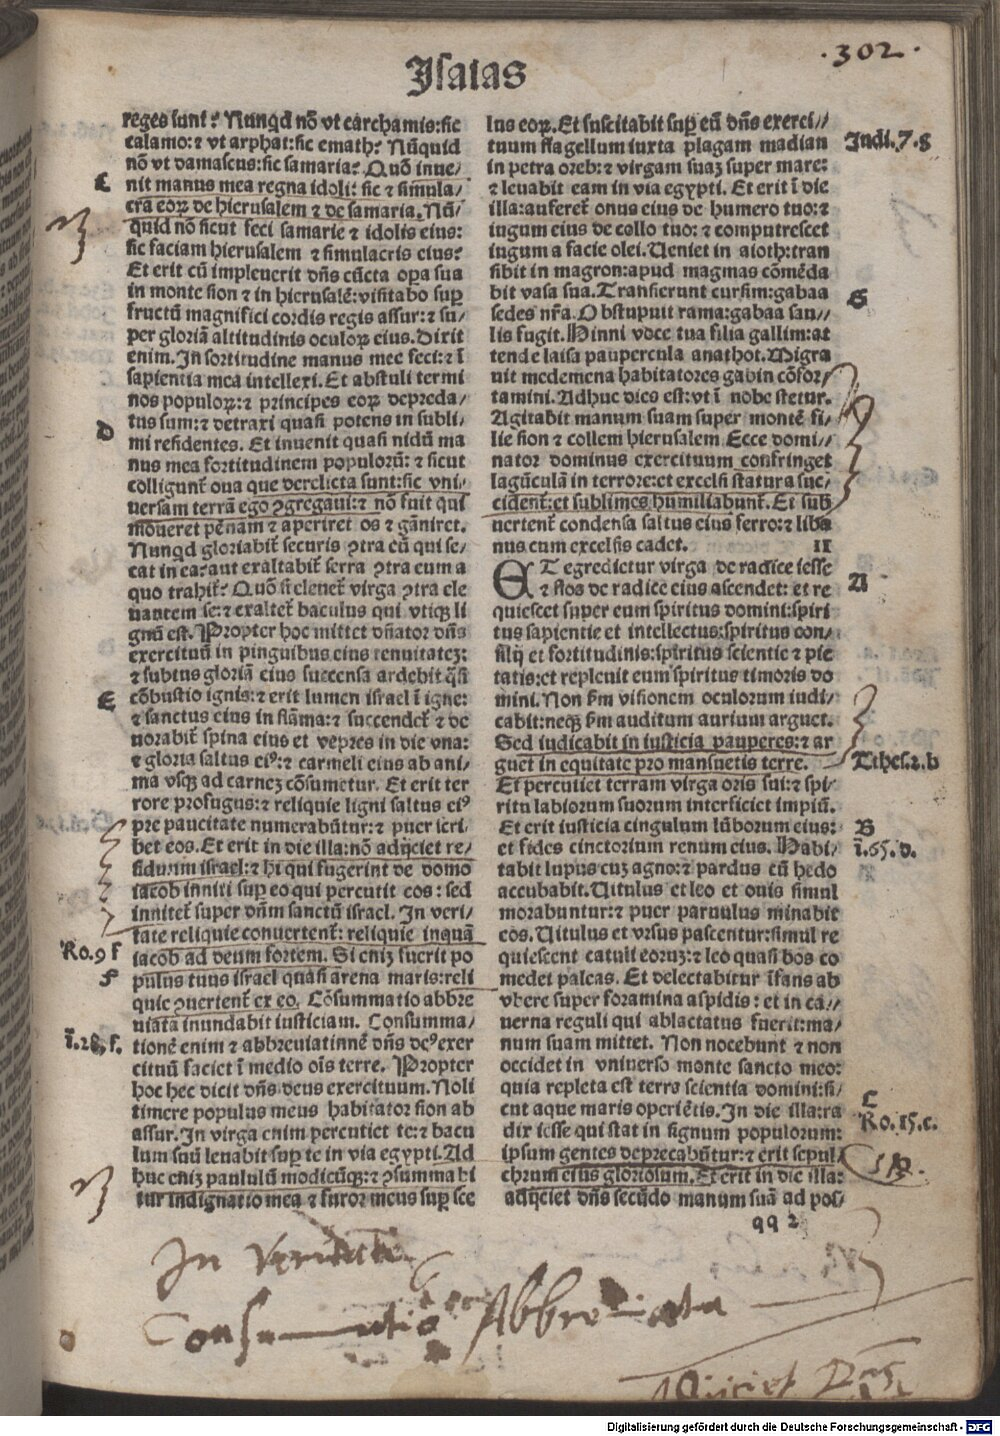 .302.
Isaias
reges sunt? Nunqd nõ vt carchamis: sic
calamo: ⁊ vt arphat: sic emath? Nũquid
nõ vt damascus: sic samaria? Quõ inue/
C
nit manus mea regna idoli: sic ⁊ simula/
cra eoꝝ de hierusalem ⁊ de samaria. Nũ/
quid nõ sicut feci samarie ⁊ idolis eius:
sic faciam hierusalem ⁊ simulacris eius?
Et erit cũ impleuerit dñs cũcta oꝑa sua
in monte sion ⁊ in hierusalẽ: visitabo suꝑ
fructũ magnifici cordis regis assur: ⁊ su/
per gloriã altitudinis oculoꝝ eius. Dixit
enim. In fortitudine manus mee feci: ⁊ ĩ
sapientia mea intellexi. Et abstuli termi
nos populoꝝ: ⁊ principes eoꝝ depreda/
tus sum: ⁊ detraxi quasi potens in subli/
D
mi residentes. Et inuenit quasi nidũ ma
nus mea fortitudinem populorũ: ⁊ sicut
colligunt̃ oua que derelicta sunt: sic vni/
uersam terrã ego ꝯgregaui: ⁊ nõ fuit qui
moueret pẽnam ⁊ aperiret os ⁊ gãniret.
Nunqd gloriabit̃ securis ꝯtra eũ qui se/
cat in ea? aut exaltabit̃ serra ꝯtra eum a
quo trahit̃? Quõ si eleuet̃ virga ꝯtra ele
uantem se: ⁊ exaltet̃ baculus qui vtiqꝫ li
gnũ est. Propter hoc mittet dñator dñs
exercituũ in pinguibus eius tenuitatez:
⁊ subtus gloriã eius succensa ardebit q̃si
E
cõbustio ignis: ⁊ erit lumen israel ĩ igne:
⁊ sanctus eius in flãma: ⁊ succendet̃ ⁊ de
uorabit̃ spina eius et vepres in die vna:
⁊ gloria saltus eiꝰ: ⁊ carmeli eius ab ani/
ma vsqꝫ ad carnez cõsumetur. Et erit ter
rore profugus: ⁊ reliquie ligni saltus eiꝰ
pre paucitate numerabũtur: ⁊ puer scri/
bet eos. Et erit in die illa: nõ adijciet re/
siduum israel: ⁊ hi qui fugerint de domo
iacob inniti suꝑ eo qui percutit eos: sed
innitet̃ super dñm sanctũ israel. In veri/
tate reliquie conuertent̃: reliquie inquã
Ro. 9 f
iacob ad deum fortem. Si eniz fuerit po
F
pulus tuus israel quasi arena maris: reli
quie ꝯuertent̃ ex eo. Cõsummatio abbre
uiata inundabit iusticiam. Consumma/
ĩ. 28. f.
tionẽ enim ⁊ abbreuiatinnẽ dñs deꝰ exer
cituũ faciet ĩ medio oĩs terre. Propter
hoc hec dicit dñs deus exercituum. Noli
timere populus meus habitator sion ab
assur. In virga enim percutiet te: ⁊ bacu
lum suũ leuabit suꝑ te in via egypti. Ad
huc eniz paululũ modicũqꝫ: ⁊ ꝯsummabi
tur indignatio mea ⁊ furor meus suꝑ sce
lus eoꝝ. Et suscitabit suꝑ eũ dñs exerci//
tuum flagellum iuxta plagam madian
Iudi. 7. g
in petra oreb: ⁊ virgam suaz super mare:
⁊ leuabit eam in via egypti. Et erit ĩ die
illa: auferet̃ onus eius de humero tuo: ⁊
iugum eius de collo tuo: ⁊ computrescet
iugum a facie olei. Ueniet in aioth: tran
sibit in magron: apud magmas cõmẽda
bit vasa sua. Transierunt cursim: gabaa
G
sedes nr̃a. Obstupuit rama: gabaa sau/
lis fugit. Hinni voce tua filia gallim: at
tende laisa paupercula anathot. Migra
uit medemena habitatores gabin cõfor/
tamini. Adhuc dies est: vt ĩ nobe stetur.
Agitabit manum suam super montẽ fi/
lie sion ⁊ collem hierusalem Ecce domi//
nator dominus exercituum confringet
lagũculã in terrore: et excelsi statura suc/
cident̃: et sublimes humiliabunt̃. Et sub
uertent̃ condensa saltus eius ferro: ⁊ liba
nus cum excelsis cadet. 11
ET egredietur virga de radice iesse
A
⁊ flos de radice eius ascendet: et re
quiescet super eum spiritus domini: spiri
tus sapientie et intellectus: spiritus con/
silij et fortitudinis: spiritus scientie ⁊ pie
tatis: et repleuit eum spiritus timoris do
mini. Non ẞm visionem oculorum iudi/
cabit: neqꝫ ẞm auditum aurium arguet.
Sed iudicabit in iusticia pauperes: ⁊ ar
guet in equitate pro mansuetis terre.
2. thes. 2. b
Et percutiet terram virga oris sui: ⁊ spi/
ritu labiorum suorum interficiet impiũ.
Et erit iusticia cingulum lũborum eius:
B
et fides cinctorium renum eius. Habi/
ĩ. 65. d.
tabit lupus cuz agno: ⁊ pardus cũ hedo
accubabit. Uitulus et leo et ouis simul
morabuntur: ⁊ puer paruulus minabit
eos. Uitulus et vrsus pascentur: simul re
quiescent catuli eoruz: ⁊ leo quasi bos co
medet paleas. Et delectabitur ĩfans ab
vbere super foramina aspidis: et in ca//
uerna reguli qui ablactatus fuerit: ma/
num suam mittet. Non nocebunt ⁊ non
occidet in vniuerso monte sancto meo:
quia repleta est terra scientia domini: si/
C
cut aque maris operiẽtis. In die illa: ra
Ro. 15. c.
dix iesse qui stat in signum populorum:
ipsum gentes deprecabũtur: ⁊ erit sepul/
chrum eius gloriosum. Et erit in die illa:
adijciet dñs secũdo manum suã ad pos/
qq 2
In veritate
Consummatio Abbreviata
Adijciet Dñs
Digitalisierung gefördert durch die Deutsche Forschungsgemeinschaft - DFG